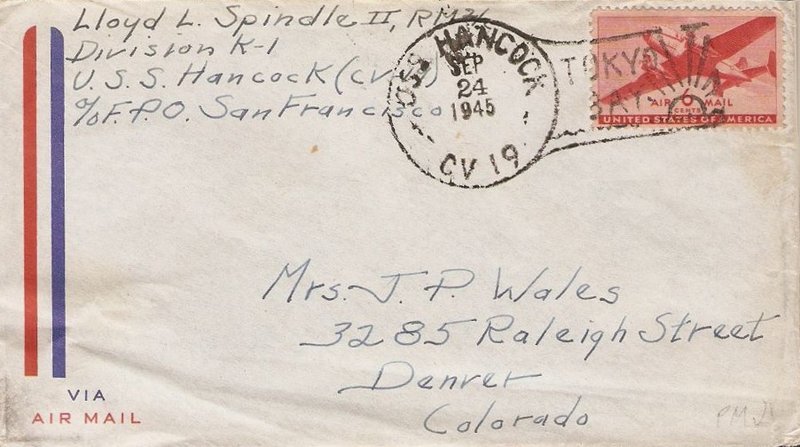 Lloyd L. Spindle II, RM3/c
Division K-1
U.S.S. Hancock (CV-19)
c/o F.P.O. San Francisco
U.S.S. HANCOCK
SEP
24
1945
CV 19
TOKYO
BAY
AIR MAIL
6
CENTS
UNITED STATES OF AMERICA
Mrs. J. P. Wales
3285 Raleigh Street
Denver
Colorado
VIA
AIR MAIL